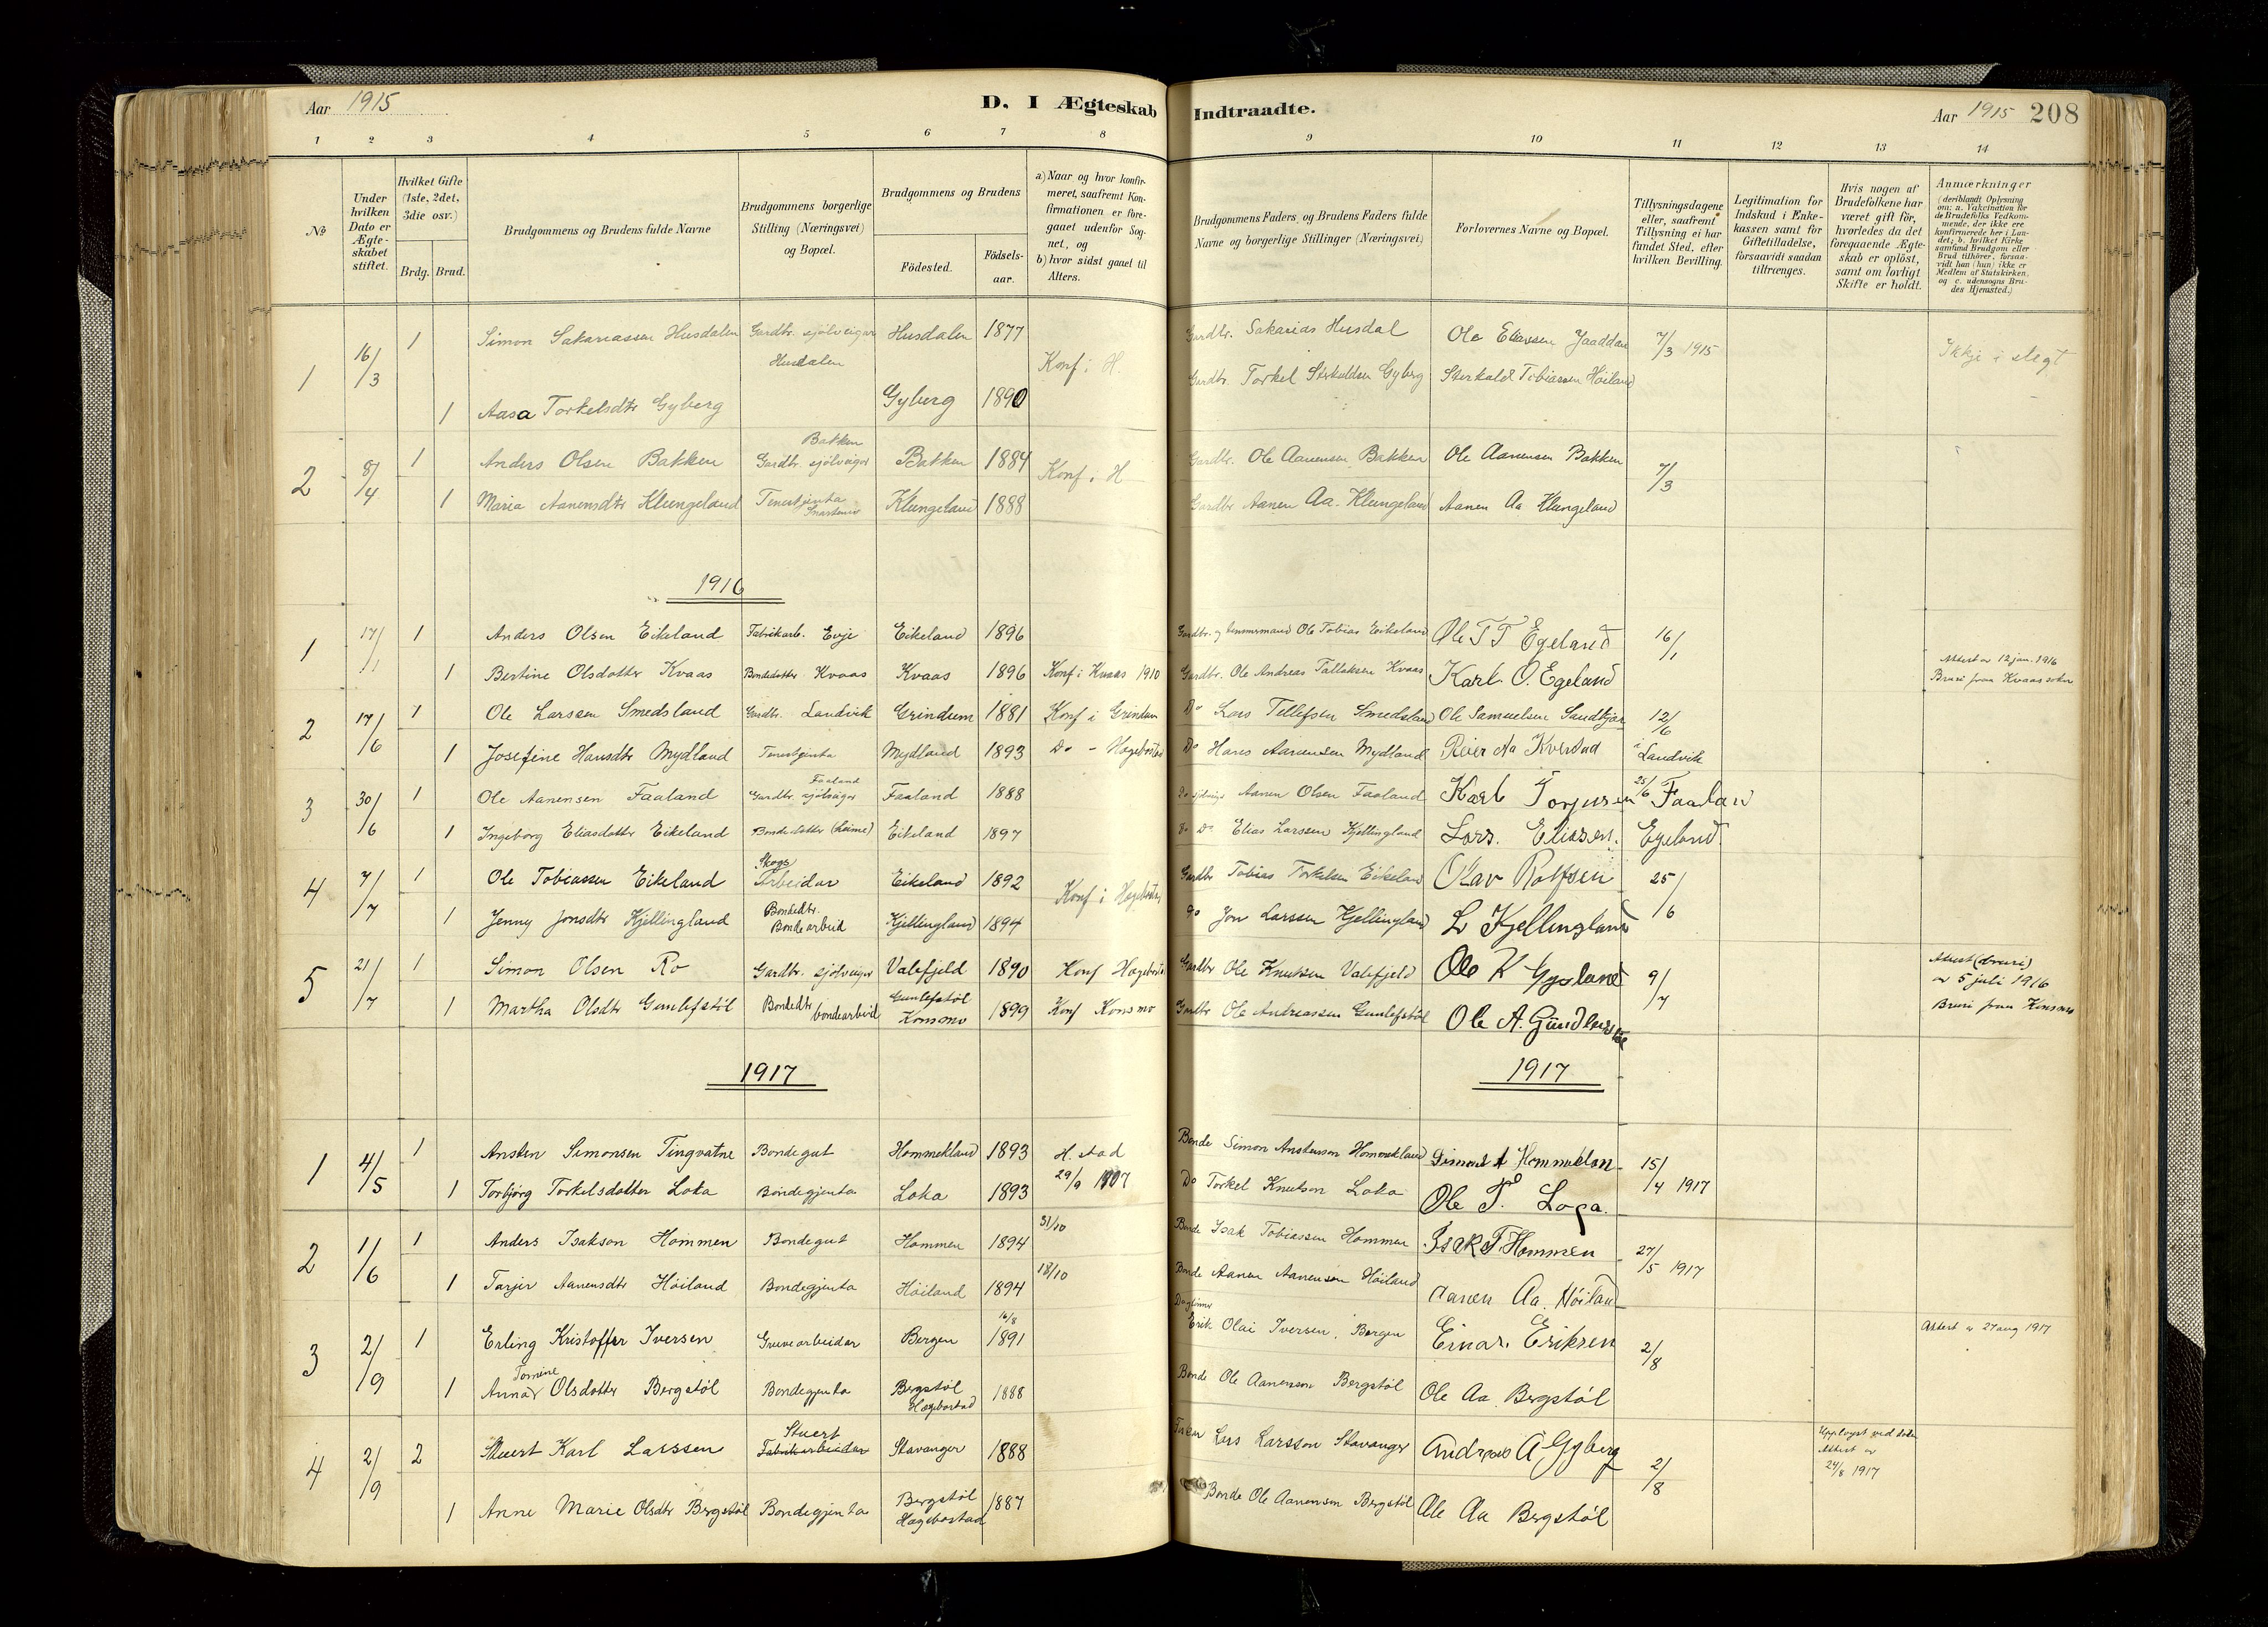 Aar 1915
D. I Ægteskab Indtraadte.
Aar 1915 208
1 2 3 4 5 6 7 8 9 10 11 12 13 14
№
Under hvilken Dato er Ægteskabet stiftet.
Hvilket Gifte (1ste, 2det, 3die osv.)
Brdg. Brud.
Brudgommens og Brudens fulde Navne
Brudgommens borgerlige Stilling (Næringsvei) og Bopæl.
Brudgommens og Brudens
Födested.
Födsels-aar.
a) Naar og hvor konfirmeret, saafremt Konfirmationen er foregaaet udenfor Sognet, og
b) hvor sidst gaaet til Alters.
Brudgommens Faders og Brudens Faders fulde Navne og borgerlige Stillinger (Næringsvei)
Forlovernes Navne og Bopæl.
Tillysningsdagene eller, saafremt Tillysning ei har fundet Sted, efter hvilken Bevilling.
Legitimation for Indskud i Enkekassen samt for Giftetilladelse, forsaavidt saadan tiltrænges.
Hvis nogen af Brudefolkene har været gift för, hvorledes da det foregaaende Ægteskab er oplöst, samt om lovligt Skifte er holdt.
Anmærkninger
(deriblandt Oplysning om: a. Vakcination for de Brudefolks Vedkommende, der ikke ere konfirmerede her i Landet; b. hvilket Kirkesamfund Brudgom eller Brud tilhörer, forsaavidt han (hun) ikke er Medlem af Statskirken, og c. udensogns Brudes Hjemsted.)
1 16/3 1 Simon Sakariassen Husdalen Gardbr. sjölveigar Husdalen Husdalen 1877 Konf. i H. Gardbr. Sakarias Husdal Ole Eliassen Jaaddan 7/3 1915 Ikkje i slegt
1 Aasa Torkelsdtr Gyberg Gyberg 1890 Gardbr. Torkel Sterkuldsen Gyberg Sterkald Tobiassen Höiland
2 8/4 1 Anders Olsen Bakken Bakken Gardbr. sjölveiger Bakken 1884 Konf. i H Gardbr. Ole Aanensen Bakken Ole Aanensen Bakken 7/3
1 Maria Aanensdtr Klungeland Tenestjenta Klungeland 1888 Gardbr Aanen Aa. Klungeland Aanen Aa Klungeland
1916
1 17/1 1 Anders Olsen Eikeland Fabrikarb. Evje Eikeland 1896 Gardbr. og tømmermand Ole Tobias Eikeland Ole T T Egeland 16/1
1 Bertine Olsdotter Kvaas Bondedotter Kvaas Kvaas 1896 Konf i Kvaas 1910 Gardbr. Ole Andreas Tallaksen Kvaas Karl O. Egeland Attest av 12 jan. 1916 Bruri fraa Kvaas sokn
2 17/6 1 Ole Larssen Smedsland Gardbr. Landvik Grindum 1881 Konf i Grindum Do Lars Tellefsen Smedsland Ole Samuelsen Sandkjær 12/6
1 Josefine Hansdtr Mydland Tenestjenta Mydland 1893 Do - Hægebostad Do Hans Aanensen Mydland Reier Aa Kverstad i Landvik
3 30/6 1 Ole Aanensen Faaland Faaland Gardbr. sjölveiger Faaland 1888 Aanen Olsen Faaland Karl Torjusen Faaland 25/6
1 Ingeborg Eliasdotter Eikeland Bondedotter (heime) Eikeland 1897 Do Do Elias Larssen Kjellingland Lars. Eliasen. Egeland.
4 7/7 1 Ole Tobiassen Eikeland Skogs Arbeidar Eikeland 1892 Konf i Hægebostad Gardbr Tobias Torkelsen Eikeland Olav Rolfsen 25/6
1 Jenny Jonsdtr Kjellingland Bondedtr. Bondearbeid Kjellingland 1894 Do Jon Larssen Kjellingland L Kjellingland
5 21/7 1 Simon Olsen Ro Gardbr. sjölveiger Valefjeld 1890 Konf Hægebostad Gardbr Ole Knutsen Valefjeld Ole K Gysland 9/7 Attest (bruri) av 5 juli 1916
1 Martha Olsdtr Gunlefstöl Bondedtr bondearbeid Gunlefstöl Konsmo 1899 Konf Konsmo Gardbr Ole Andreassen Gunlefstöl Ole A. Gundlefstöl Bruri fraa Konsmo
1917 1917
1 4/5 1 Ansten Simonsen Tingvatne Bondegut Hommekland 1893 H.stad 29/9 1907 Bonde Simon Anstenson Hommekland Simon A Hommeklan 15/4 1917
1 Torbjörg Torkelsdotter Loka Bondegjenta Loka 1893 Do Torkel Knutson Loka Ole T. Loga.
2 1/6 1 Anders Isakson Hommen Bondegut Hommen 1894 31/10 Bonde Isak Tobiassen Hommen Isak T. Hommen 27/5 1917
1 Tarjer Aanensdtr Höiland Bondegjenta Höiland 1894 18/10 Bonde Aanen Aanensen Höiland Aanen Aa. Höiland
3 2/9 1 Erling Kristoffer Iversen Gruvearbeidar Bergen 16/8 1891 Erik Olai Iversen, Bergen Einar. Eriksen 2/8 Attest av 27 aug 1917
1 Anna Tomine Olsdotter Bergstöl Bondegjenta Bergstöl Hægebostad 1888 Bonde Ole Aanenson Bergstöl Ole Aa Bergstöl
4 2/9 2 Stuert Karl Larssen Stuert Fabrikarbeidar Stavanger 1888 Lars Larsson Stavanger Andreas A Gyberg 2/8 Upplöyst ved Attest av 24/8 1917
1 Anne Marie Olsdtr Bergstöl Bondegjenta Bergstöl Hægebostad 1887 Bonde Ole Aanenson Bergstöl Ole Aa Bergstöl